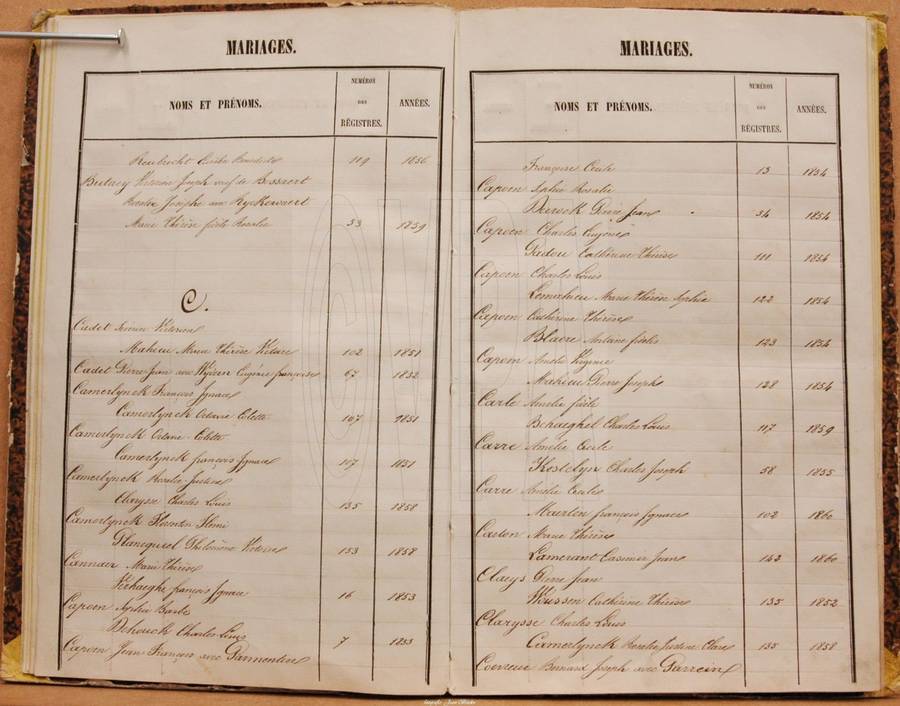 MARIAGES.
NOMS ET PRÉNOMS.
NUMÉROS
DES
RÉGISTRES.
ANNÉES.
119 1856
Butay Joseph veuf de Bossaert
Joséphe avec Ryckewaert
Marie Thérèse Rosalie 53 1859
C.
Cadet Séverin Victorien
Mahieu Marie Thérèse Victoire 102 1851
Cadet Pierre Jean avec Wyvein Eugénie françoise 67 1852
Camerlynck François Ignace
Camerlynck Octavie Colette 107 1851
Camerlynck Octavie Colette
Camerlynck françois Ignace 107 1851
Camerlynck Rosalie Justine
Clarysse Charles Louis 135 1858
Camerlynck Florentin Henri
Plancqueel Philomène Victoire 153 1858
Cannaer Marie Thérèse
Verhaeghe françois Ignace 16 1853
Capoen Sophie Barbe
Dehouck Charles Louis 7 1853
Capoen Jean François avec Parmentier
MARIAGES.
NOMS ET PRÉNOMS.
NUMÉROS
DES
RÉGISTRES.
ANNÉES.
Françoise Cécile 13 1854
Capoen Sophie Rosalie
Pierre Jean 34 1854
Capoen Charles Eugène
Catherine Thérèse 111 1854
Capoen Charles Louis
Lemahieu Marie Thérèse Sophie 122 1854
Capoen Catherine Thérèse
Blaere Antoine fidèle 123 1854
Capoen Amélie Virginie
Mahieu Pierre Joseph 128 1854
Carle Amélie
Behaeghel Charles Louis 117 1859
Carre Amélie Cécile
Kestelyn Charles Joseph 58 1855
Carre Amélie Cécile
Maerten françois Ignace 102 1860
Carton Marie Thérèse
Lamerant Casimir Jean 143 1860
Claeys Pierre Jean
Catherine Thérèse 135 1852
Clarysse Charles Louis
Camerlynck Rosalie Justine Claire 135 1858
Coevreur Bernard Joseph avec Parrein